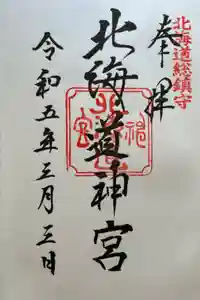 北海道総鎮守
奉拝
北海道神宮
令和五年三月三日